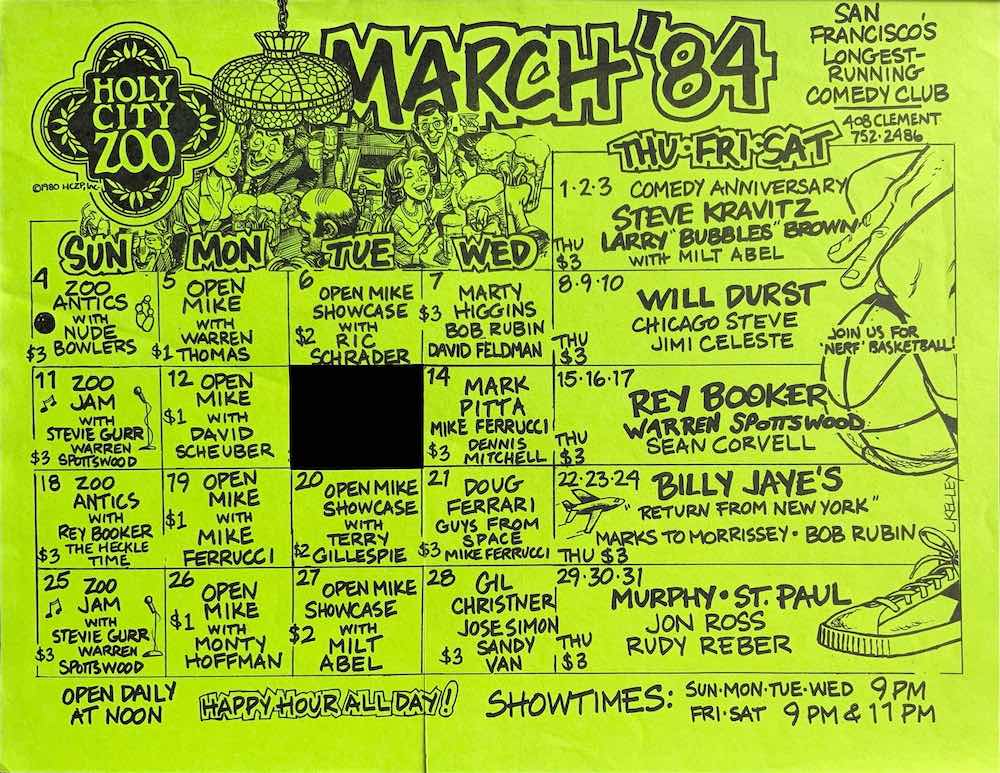 HOLY
CITY
ZOO
©1980 HCZP, INC.
MARCH '84
SAN
FRANCISCO'S
LONGEST-
RUNNING
COMEDY CLUB
408 CLEMENT
752-2486
THU·FRI·SAT
1·2·3 COMEDY ANNIVERSARY
STEVE KRAVITZ
LARRY "BUBBLES" BROWN
WITH MILT ABEL
THU
$3
SUN
MON
TUE
WED
4 ZOO
ANTICS
WITH
NUDE
BOWLERS
$3
5 OPEN
MIKE
WITH
WARREN
THOMAS
$1
6 OPEN MIKE
SHOWCASE
WITH
RIC
SCHRADER
$2
7 MARTY
HIGGINS
BOB RUBIN
DAVID FELDMAN
$3
8·9·10
WILL DURST
CHICAGO STEVE
JIMI CELESTE
THU
$3
JOIN US FOR
'NERF' BASKETBALL!
11 ZOO
JAM
WITH
STEVIE GURR
WARREN
SPOTTSWOOD
$3
12 OPEN
MIKE
WITH
DAVID
SCHEUBER
$1
14 MARK
PITTA
MIKE FERRUCCI
DENNIS
MITCHELL
$3
15·16·17
REY BOOKER
WARREN SPOTTSWOOD
SEAN CORVELL
THU
$3
18 ZOO
ANTICS
WITH
REY BOOKER
THE HECKLE
TIME
$3
19 OPEN
MIKE
WITH
MIKE
FERRUCCI
$1
20 OPEN MIKE
SHOWCASE
WITH
TERRY
GILLESPIE
$2
21 DOUG
FERRARI
GUYS FROM
SPACE
MIKE FERRUCCI
$3
22·23·24 BILLY JAYE'S
"RETURN FROM NEW YORK"
MARKS TO MORRISSEY · BOB RUBIN
THU $3
L KELLEY
25 ZOO
JAM
WITH
STEVIE GURR
WARREN
SPOTTSWOOD
$3
26 OPEN
MIKE
WITH
MONTY
HOFFMAN
$1
27 OPEN MIKE
SHOWCASE
WITH
MILT
ABEL
$2
28 GIL
CHRISTNER
JOSE SIMON
SANDY
VAN
$3
29·30·31
MURPHY · ST. PAUL
JON ROSS
RUDY REBER
THU
$3
OPEN DAILY
AT NOON
HAPPY HOUR ALL DAY!
SHOWTIMES: SUN·MON·TUE·WED 9 PM
FRI·SAT 9 PM & 11 PM